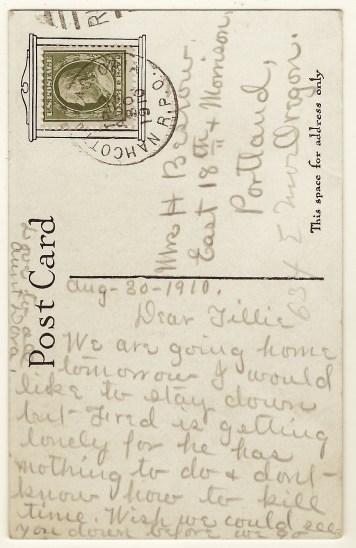 U.S. POSTAGE
NAHCOTTA
R.P.O.
AUG
30
1910
Mrs H
East 18th + Morrison
Portland,
Oregon.
634 E
This space for address only
Post Card
Aunt Dora.
Aug-30-1910.
Dear Tillie
We are going home
tomorrow I would
like to stay down
but Fred is getting
lonely for he has
nothing to do + dont-
know how to kill
time. Wish we could see
you down before we go